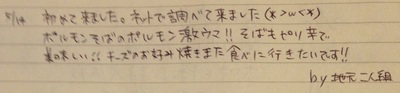 5/14 初めて来ました。ネットで調べて来ました(*>ω<*)
ホルモンそばのホルモン激ウマ!! そばもピリ辛で、
美味しい!! チーズのお好み焼きまた食べに行きたいです!!
by 地元二人組